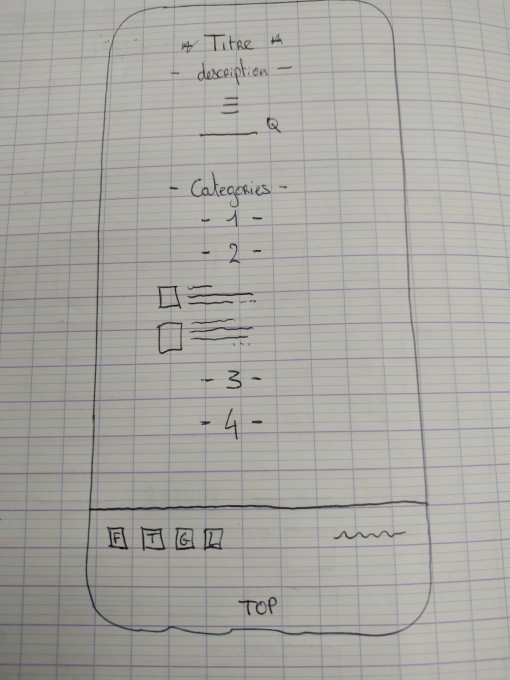 Titre
- description -
- Categories -
- 1 -
- 2 -
- 3 -
- 4 -
F T G L
TOP